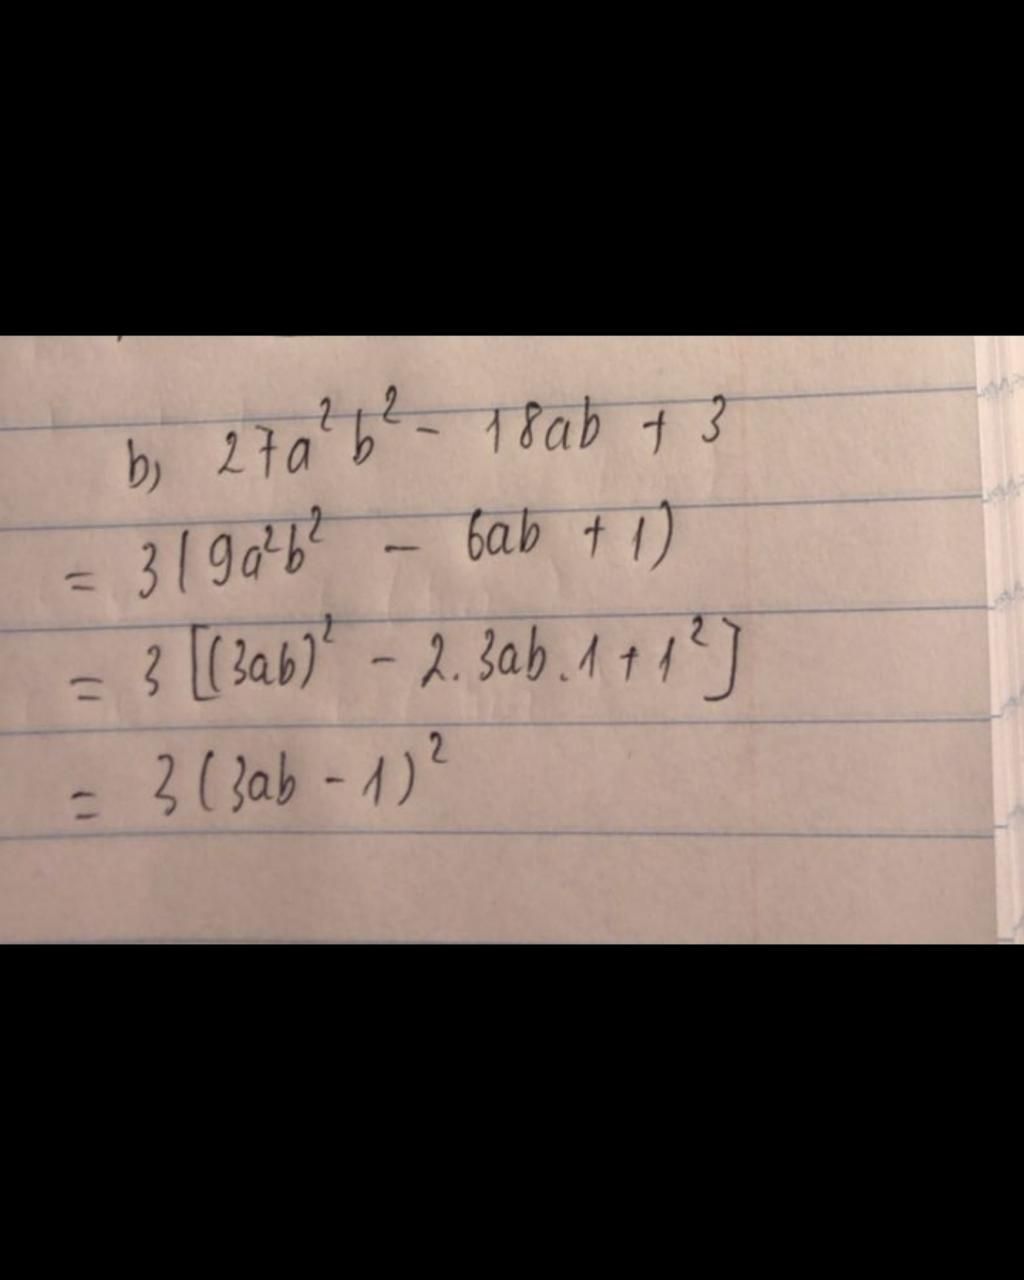 b, 27a²b² - 18ab + 3
= 3(9a²b² - 6ab + 1)
= 3[(3ab)² - 2.3ab.1 + 1²]
= 3(3ab - 1)²